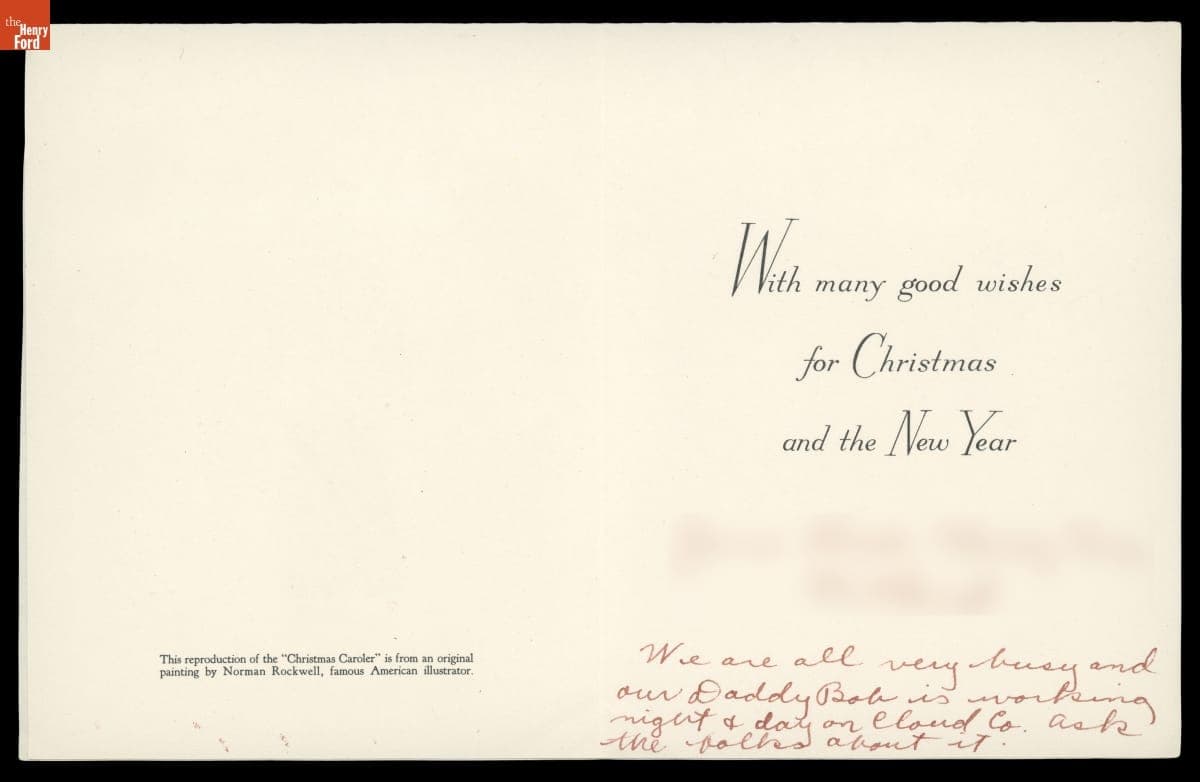 the
Henry
Ford
With many good wishes
for Christmas
and the New Year
This reproduction of the "Christmas Caroler" is from an original
painting by Norman Rockwell, famous American illustrator.
We are all very busy and
our Daddy Bob is working
night & day on Cloud Co. ask
the folks about it.